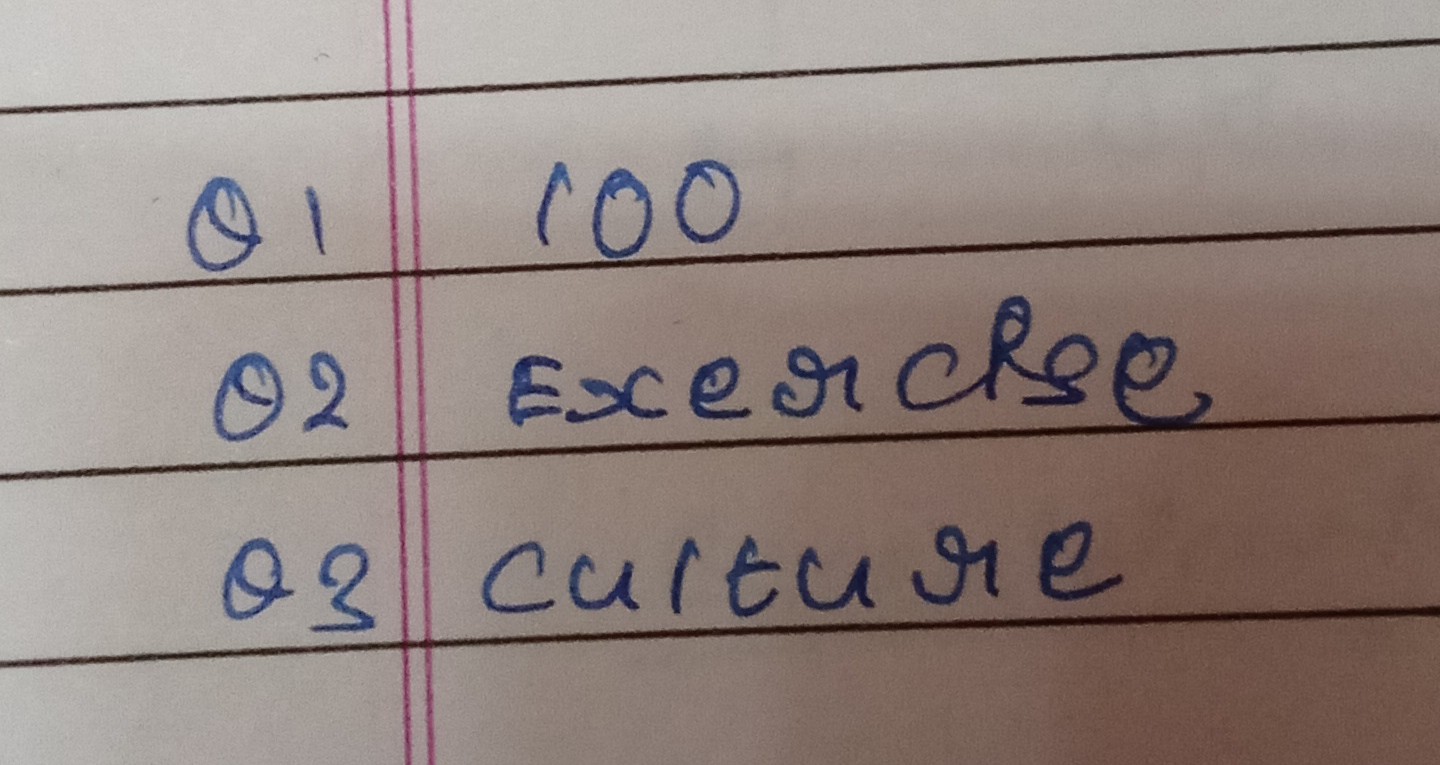 Q1 100
Q2 Exercise
Q3 culture